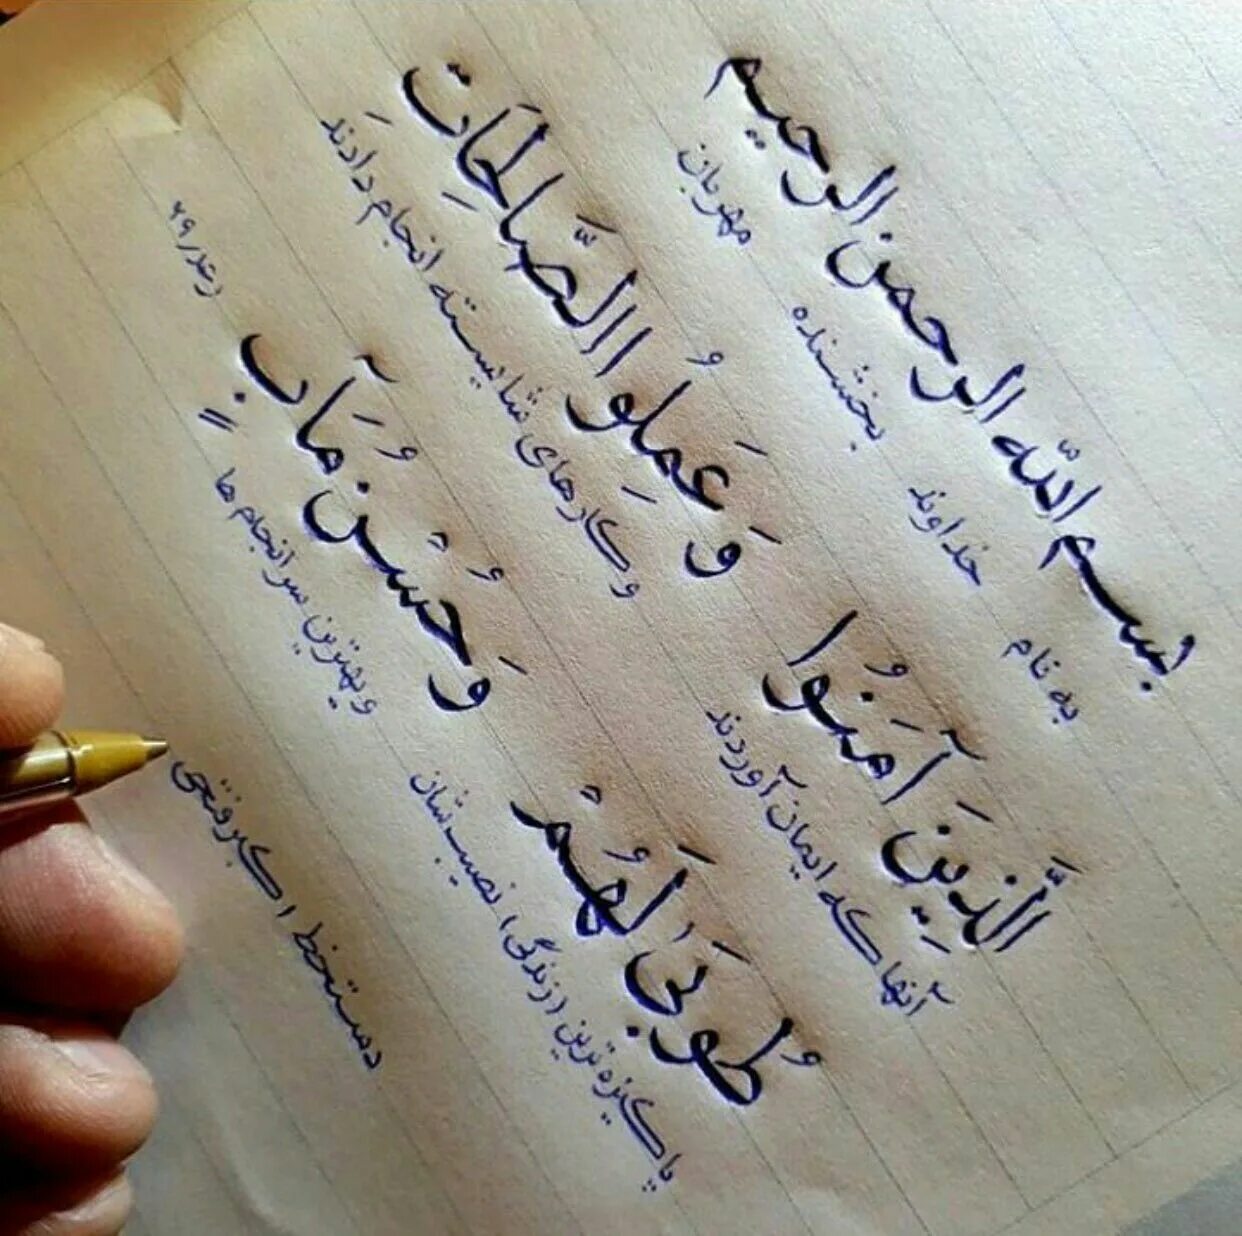 بسم الله الرحمن الرحیم
به نام خداوند بخشنده مهربان
الَّذینَ آمَنُوا وَ عَمِلُوا الصَّالِحَاتِ
آنها که ایمان آوردند و کارهای شایسته انجام دادند
طُوبَىٰ لَهُمْ وَ حُسْنُ مَآبٍ
پاکیزه ترین (زندگی) نصیب شان و بهترین سرانجام ها
رعد/۲۹
دستخط اکبر فتحی